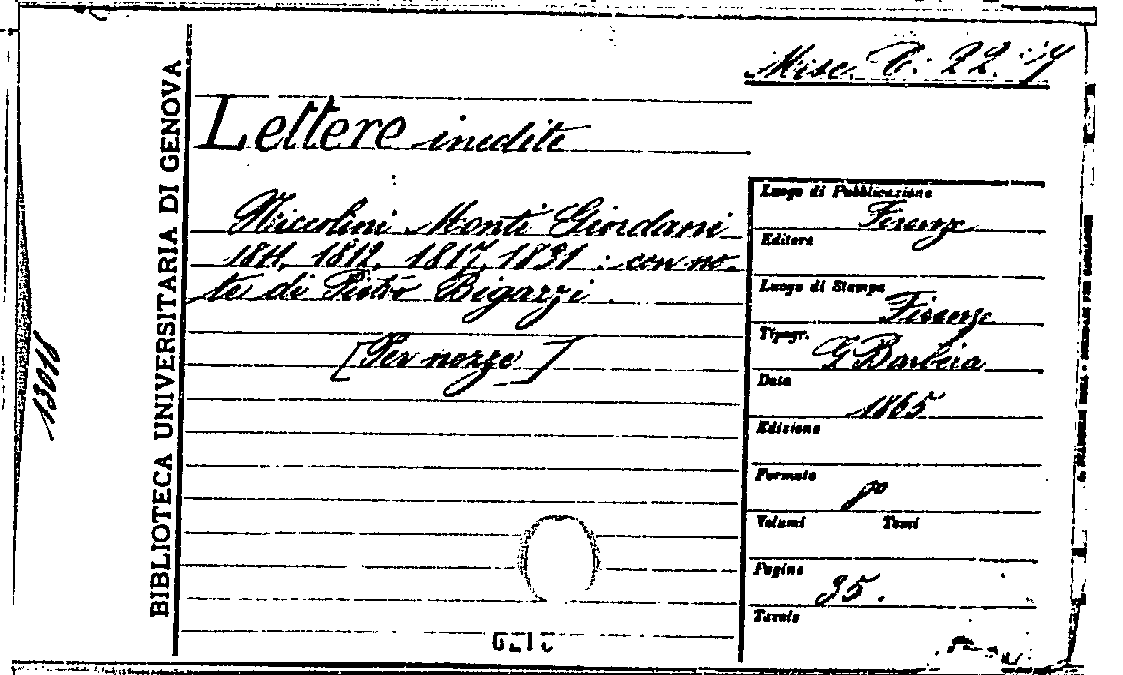 Misc. C. 22. 17
Lettere inedite
Niccolini Monti Giordani
1811, 1812, 1817, 1831 : con no-
te di Pietro Bigazzi.
[Per nozze]
BIBLIOTECA UNIVERSITARIA DI GENOVA
13018
Luogo di Pubblicazione
Firenze
Editore
Luogo di Stampa
Firenze
Tipogr. G Barbèra
Data
1865
Edizione
Formato
8°
Volumi Tomi
Pagine
35.
Tavole